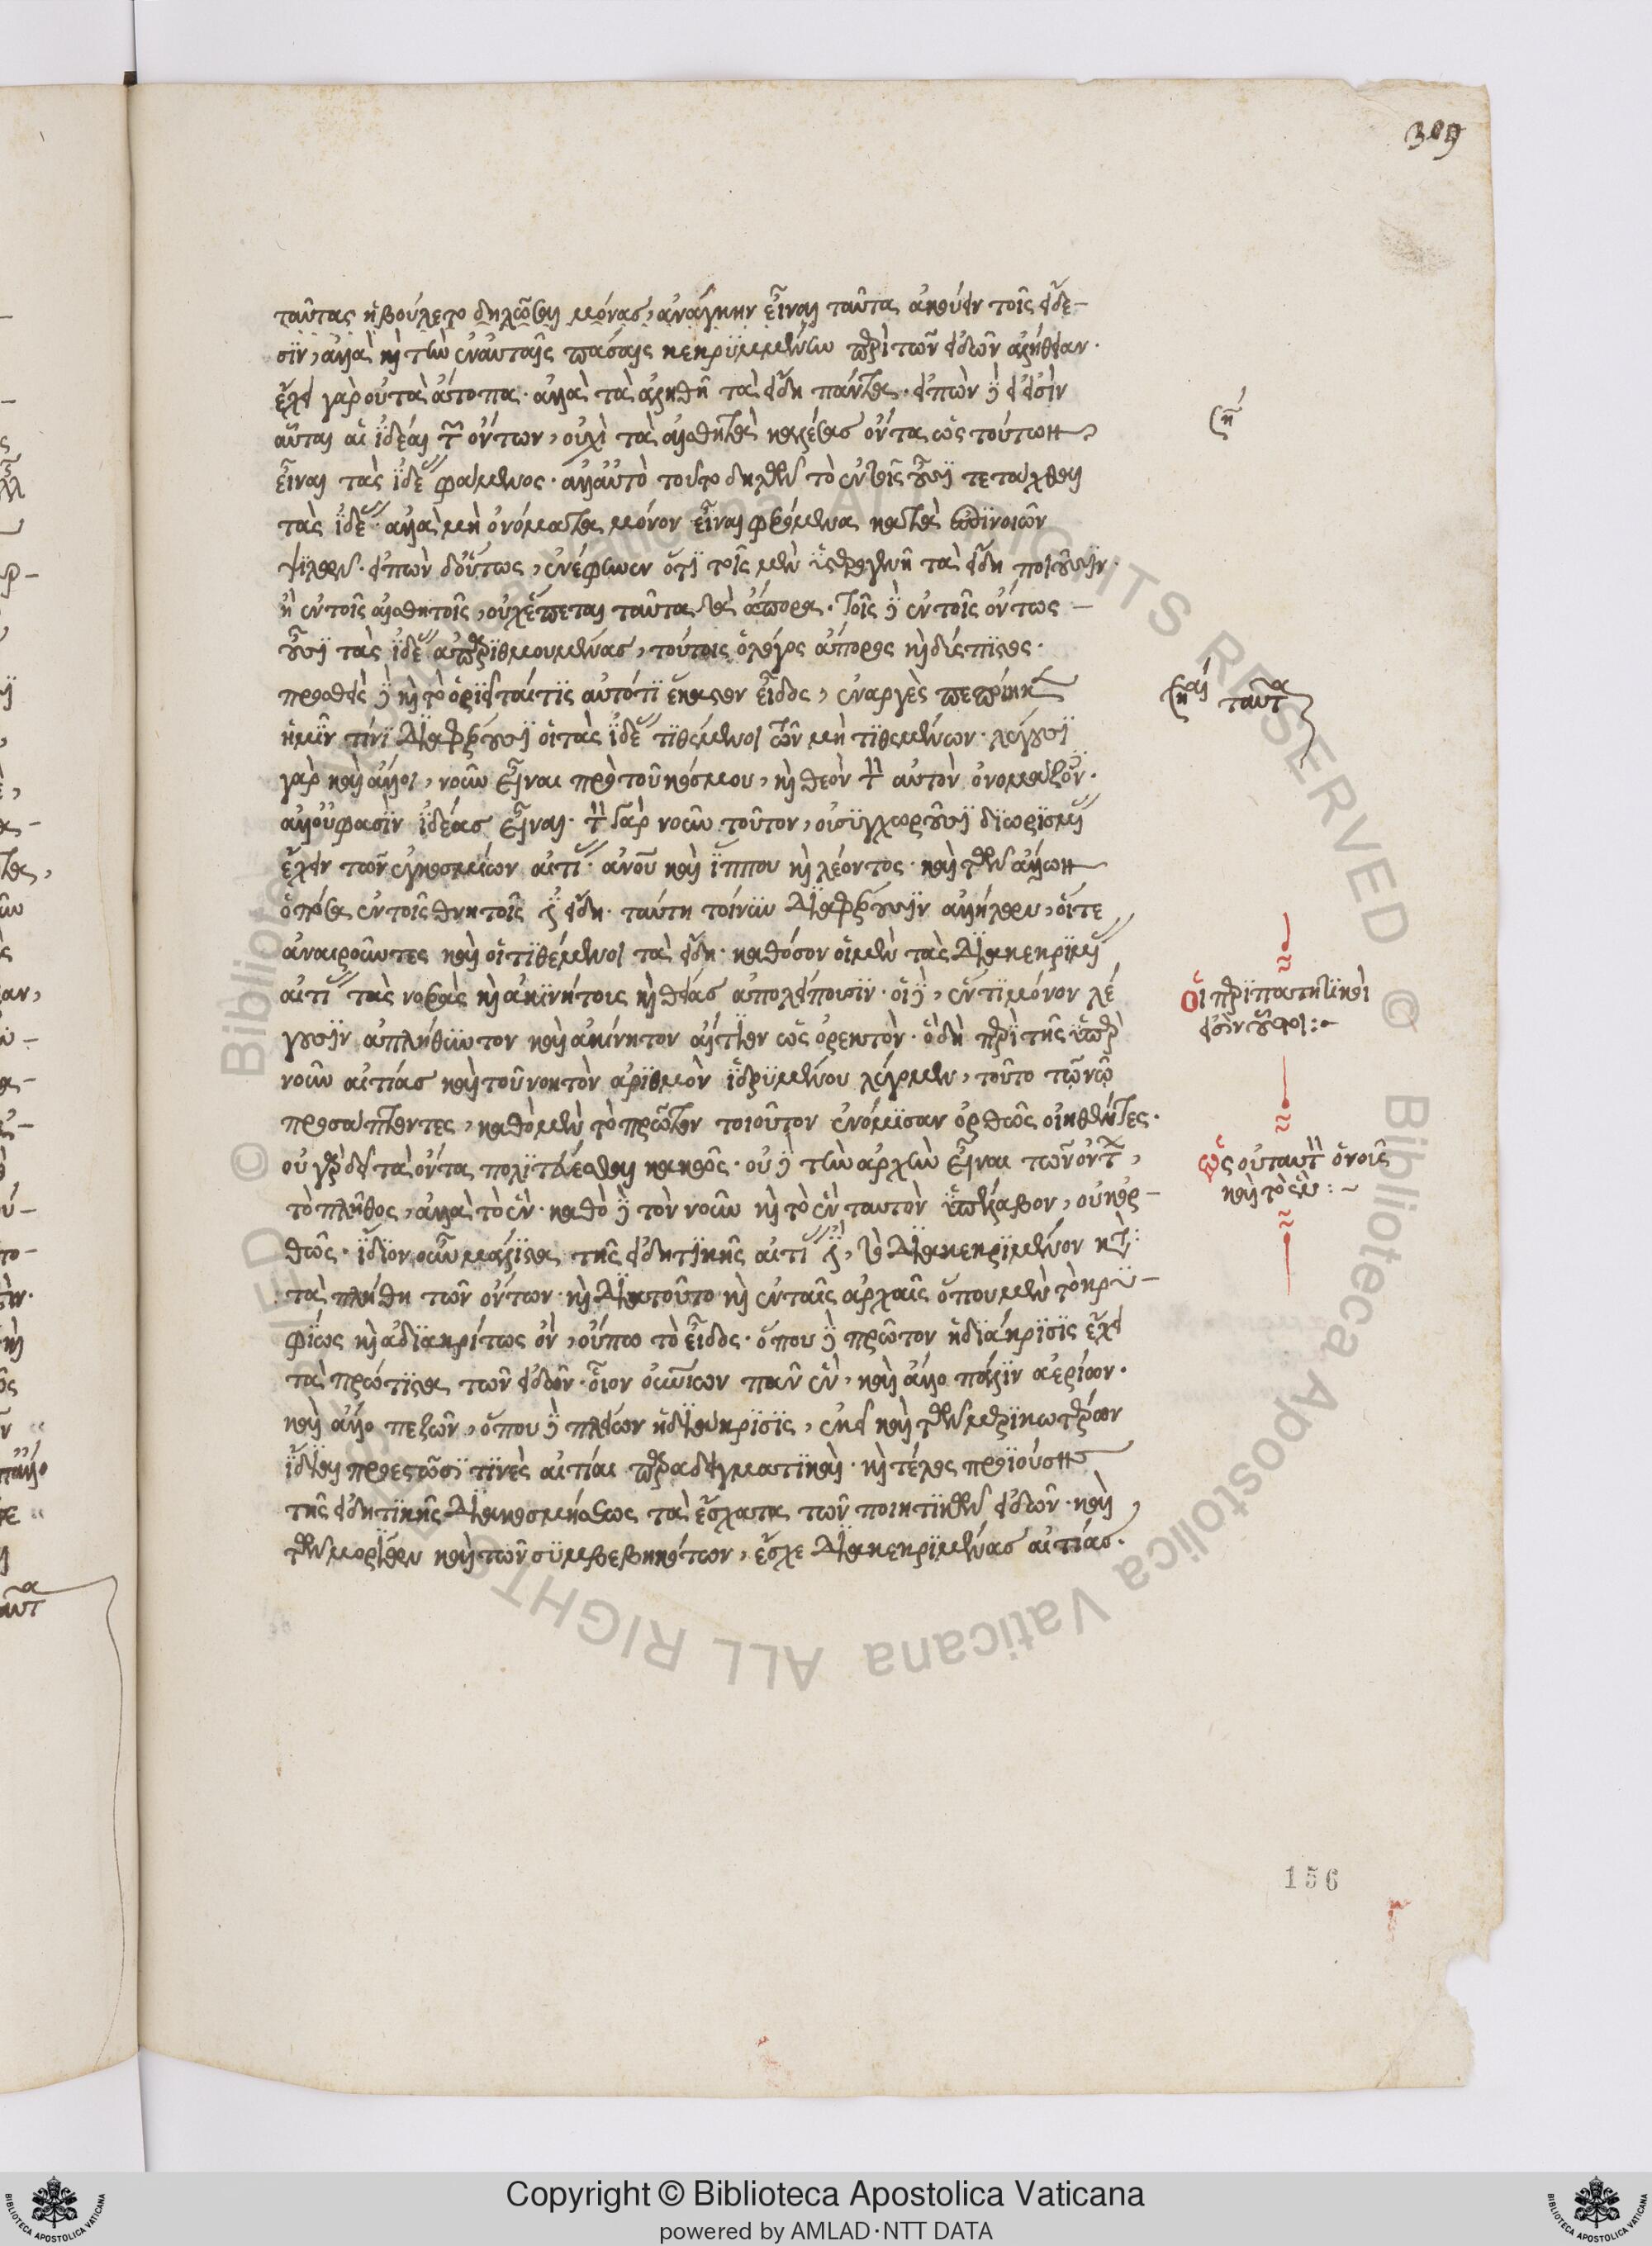 309
ταύτας ἠβούλετο δηλῶσαι μόνας, ἀνάγκην εἶναι ταῦτα ἀκούειν τοῖς εἴδε-
σϊν, ἀλλὰ κὶ τὴν ἐν αὐταῖς πάσαις κεκρϋμμένην περὶ τῶν εἰδῶν ἀλήθειαν.
ἔχει γὰρ οὐ τὰ ἄτοπα. ἀλλὰ τὰ ἀληθῆ τὰ εἴδη πάντα. εἰπὼν δὲ εἰ εἰσὶν
αὗται αἱ ἰδέαι τῶν ὄντων, οὐχὶ τὰ αἰσθητὰ καλέσας ὄντα ὡς τούτων
εἶναι τὰς ἰδέας φάμενος. ἀλλ' αὐτὸ τοῦτο δηλῶν τὸ ἐν τοῖς οὖσϊ τετάχθαι
τὰς ἰδέας. ἀλλὰ μὴ ὀνόματα μόνον εἶναι φερόμενα κατὰ
ψϊλῶν. εἰπὼν δ' οὕτως, ἐνέφηνεν ὅτι τοῖς μὲν ὑστερογενῆ τὰ εἴδη ποιοῦσϊν.
ἢ ἐν τοῖς αἰσθητοῖς, οὐχ ἕπεται ταῦτα τὰ ἄπορα. τοῖς δὲ ἐν τοῖς ὄντως
οὖσϊ τὰς ἰδέας, τούτοις ὁ λόγος ἄπορος κὶ δύσπϊστος.
προσθεὶς δὲ κὶ τὸ ὁριεῖταί τϊς αὐτό τϊ ἕκαστον εἶδος, ἐναργὲς πεποίηκεν
ἡμῖν τίνϊ διαφέρουσϊ οἱ τὰς ἰδέας τϊθέμενοι τῶν μὴ τϊθεμένων. λέγουσϊ
γὰρ καὶ ἄλλοι, νοῦν εἶναι πρὸ τοῦ κόσμου, κὶ θεὸν τοῦτον αὐτὸν ὀνομάζουσιν.
ἀλλ' οὔ φασϊν ἰδέας εἶναι. τὸν γὰρ νοῦν τοῦτον, οὐ συγχωροῦσϊ δϊωρϊσμένας
ἔχειν τῶν ἐγκοσμίων αἰτίας. ἀνοῦ καὶ ἵππου κὶ λέοντος. καὶ τῶν ἄλλων
ὁπόσα ἐν τοῖς θνητοῖς ἐστι εἴδη. ταύτη τοίνυν διαφέρουσϊν ἀλλήλων, οἵ τε
ἀναιροῦντες καὶ οἱ τϊθέμενοι τὰ εἴδη. καθόσον οἱ μὲν τὰς διακεκρϊμένας
αἰτίας τὰς νοερὰς κὶ ἀκϊνήτοις κὶ θείας ἀπολείπουσϊν. οἱ δὲ, ἕν τϊ μόνον λέ
γουσϊν ἀπλήθυντον καὶ ἀκίνητον αἴτϊον ὡς ὀρεκτόν. ὃ δὴ περὶ τῆς ὑπὲρ
νοῦν αἰτίας καὶ τοῦ νοητὸν ἀρϊθμὸν ἱδρϋμένου λέγομεν, τοῦτο τῷ νῷ
προσάπτοντες, καθὸ μὲν τὸ πρῶτον τοιοῦτον ἐνόμϊσαν ὀρθῶς οἰηθέντες.
οὐ γὰρ δεῖ τὰ ὄντα πολϊτεύεσθαι κακῶς. οὐ δὲ τὴν ἀρχὴν εἶναι τῶν ὄντων,
τὸ πλῆθος, ἀλλὰ τὸ ἕν. καθὸ δὲ τὸν νοῦν κὶ τὸ ἓν ταυτὸν ὑπέλαβον, οὐκ ὀρ-
θῶς. ἴδϊον οὖν μάλϊστα τῆς εἰδητϊκῆς αἰτίας ἐστι, τὸ διακεκρϊμένον κατὰ
τὰ πλήθη τῶν ὄντων. κὶ διὰ τοῦτο κὶ ἐν ταῖς ἀρχαῖς ὅπου μὲν τὸ κρϋ-
φίως κὶ ἀδϊακρίτως ὄν, οὔπω τὸ εἶδος. ὅπου δὲ πρῶτον ἡ δϊάκρϊσϊς ἔχει
τὰ πρώτϊστα τῶν εἰδῶν. οἷον οὐρανίων πᾶν ἕν, καὶ ἄλλο πάλϊν ἀερίων.
καὶ ἄλλο πεζῶν, ὅπου δὲ πλείων ἡ δϊάκρϊσϊς, ἐκεῖ καὶ τῶν μερϊκωτέρων
ἰδίαι προεστῶσϊ τϊνὲς αἰτίαι παραδειγματϊκαί. κὶ τέλος προϊούσης
τῆς εἰδητϊκῆς διακοσμήσεως τὰ ἔσχατα τῶν ποιητϊκῶν εἰδῶν. καὶ
τῶν μορίων καὶ τῶν σϋμβεβηκότων, ἔσχε διακεκρϊμένας αἰτίας.
καὶ ταῦτα
οἱ περϊπατητϊκοί
εἰσὶν οὗτοι:
ὡς οὐ ταυτὸν ὁ νοῦς
καὶ τὸ ἕν:
156
Copyright © Biblioteca Apostolica Vaticana
powered by AMLAD·NTT DATA